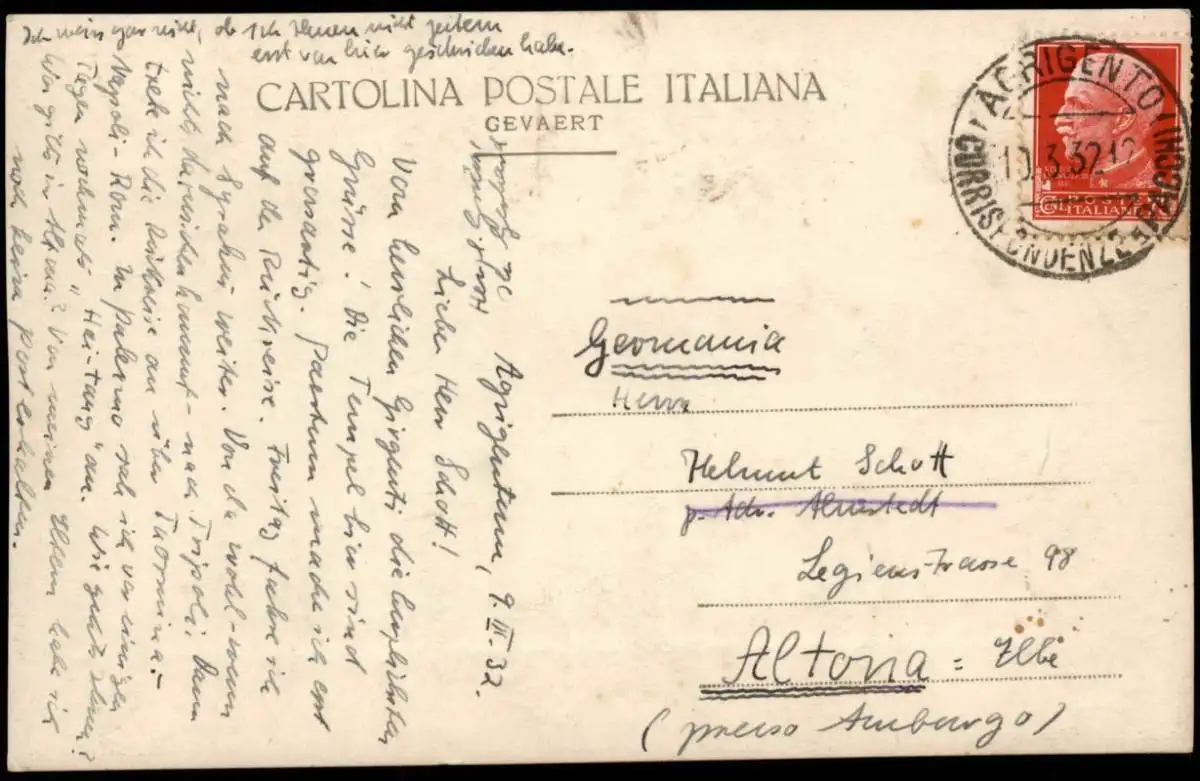 CARTOLINA POSTALE ITALIANA
GEVAERT
AGRIGENTO
10.3.32.12
CORRISPONDENZE
POSTE
ITALIANE
Germania
Herrn
Helmut Schott
p. Adr. Almstedt
Legienstrasse 98
Altona = Elbe
(presso Amburgo)
Agrigentum, 9.III.32.
Lieber Herr Schott!
Vom herrlichen Girgenti die herzlichsten
Grüsse! Die Tempel hier sind
grossartig. Paestum mache ich erst
auf der Rückreise. Freitag fahre ich
nach Syrakus weiter. Von da wohl - wenn
nichts dazwischen kommt - nach Tripolis. Dann
trete ich die Rückreise an über Taormina -
Napoli - Rom. In Palermo sah ich vor einigen
Tagen nochmals "Hai-tang" an. Wie geht's Ihnen?
Was gibt's in Altona? Von meinen Eltern habe ich
noch keine Post erhalten.
Ich weiss gar nicht, ob ich Ihnen nicht gestern
erst von hier geschrieben habe.